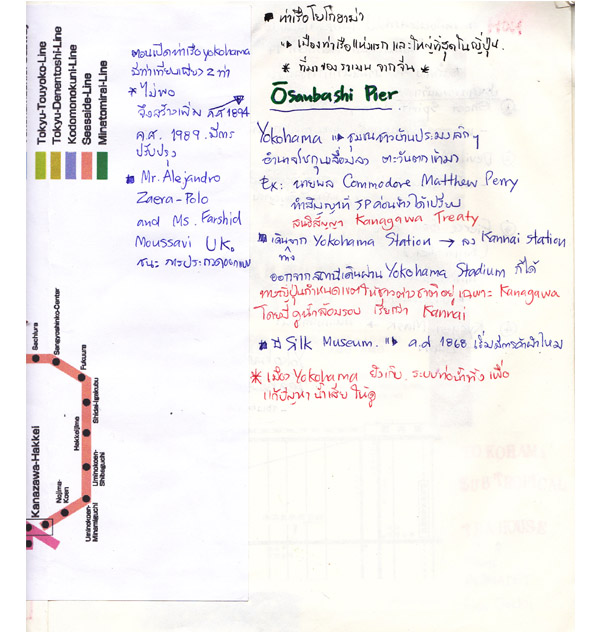 Tokyu-Touyoko-Line
Tokyu-Denentoshi-Line
Kodomonokuni-Line
Seasaide-Line
Minatomirai-Line
ตอนเปิดท่าเรือ yokohama
มีท่าเทียบเพียง 2 ท่า
* ไม่พอ
จึงสร้างเพิ่ม ค.ศ 1894
ค.ศ. 1989 มีการ
ปรับปรุง
Mr. Alejandro
Zaera-Polo
and Ms. Farshid
Moussavi UK.
ชนะ การประกวดออกแบบ
Sachiura
Sangyoshinko-Center
Fukuura
Shidai-Igakubu
Hakkeijima
Uminokoen-
Shibaguchi
Uminokoen-
Minamiguchi
Nojima-
Koen
Kanazawa-Hakkei
ท่าเรือโยโกฮาม่า
เมืองท่าเรือแห่งแรก และใหญ่ที่สุดในญี่ปุ่น.
* ที่มาของราเมน จากจีน *
Ōsanbashi Pier
Yokohama ชุมชนชาวบ้านประมงเล็กๆ
อำนาจโชกุนเสื่อมลง ตะวันตกเข้ามา
Ex: นายพล Commodore Matthew Perry
ทำสัญญาที่ JP ค่อนข้างได้เปรียบ
สนธิสัญญา Kanagawa Treaty
เดินจาก Yokohama Station → ลง Kannai station
ออกจากสถานีเดินผ่าน Yokohama Stadium ก็ได้
ทางญี่ปุ่นกำหนดเขตให้ชาวต่างชาติอยู่ เฉพาะ Kanagawa
โดยมี คูน้ำล้อมรอบ เรียกว่า Kannai
มี Silk Museum. a.d 1868 เริ่มมีการค้าผ้าไหม
* เมือง Yokohama ยังเก็บ ระบบท่อน้ำทิ้ง เพื่อ
แก้ปัญหา น้ำเสีย ให้ดู